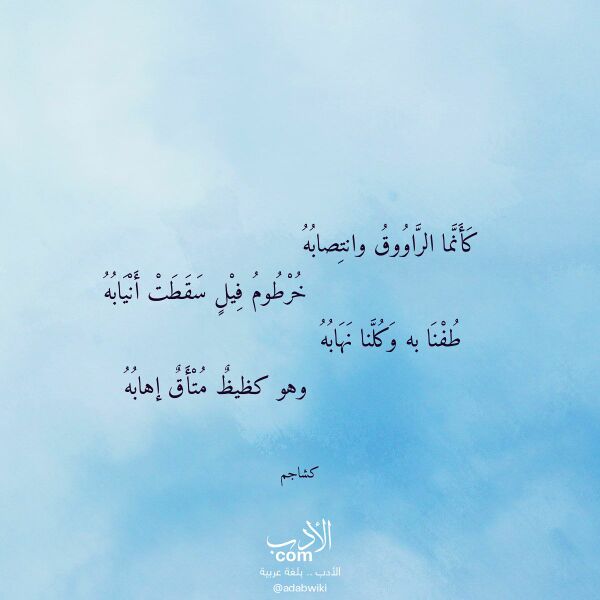 كَأَنَّما الرَّاوُوقُ وانتِصابُهُ
خُرْطُومُ فِيْلٍ سَقَطَتْ أَنْيَابُهُ
طُفْنَا به وَكُلَّنا نَهَابُهُ
وهو كظيظٌ مُتْأَقٌ إهابُهُ
كشاجم
الأدب
com
الأدب .. بلغة عربية
@adabwiki